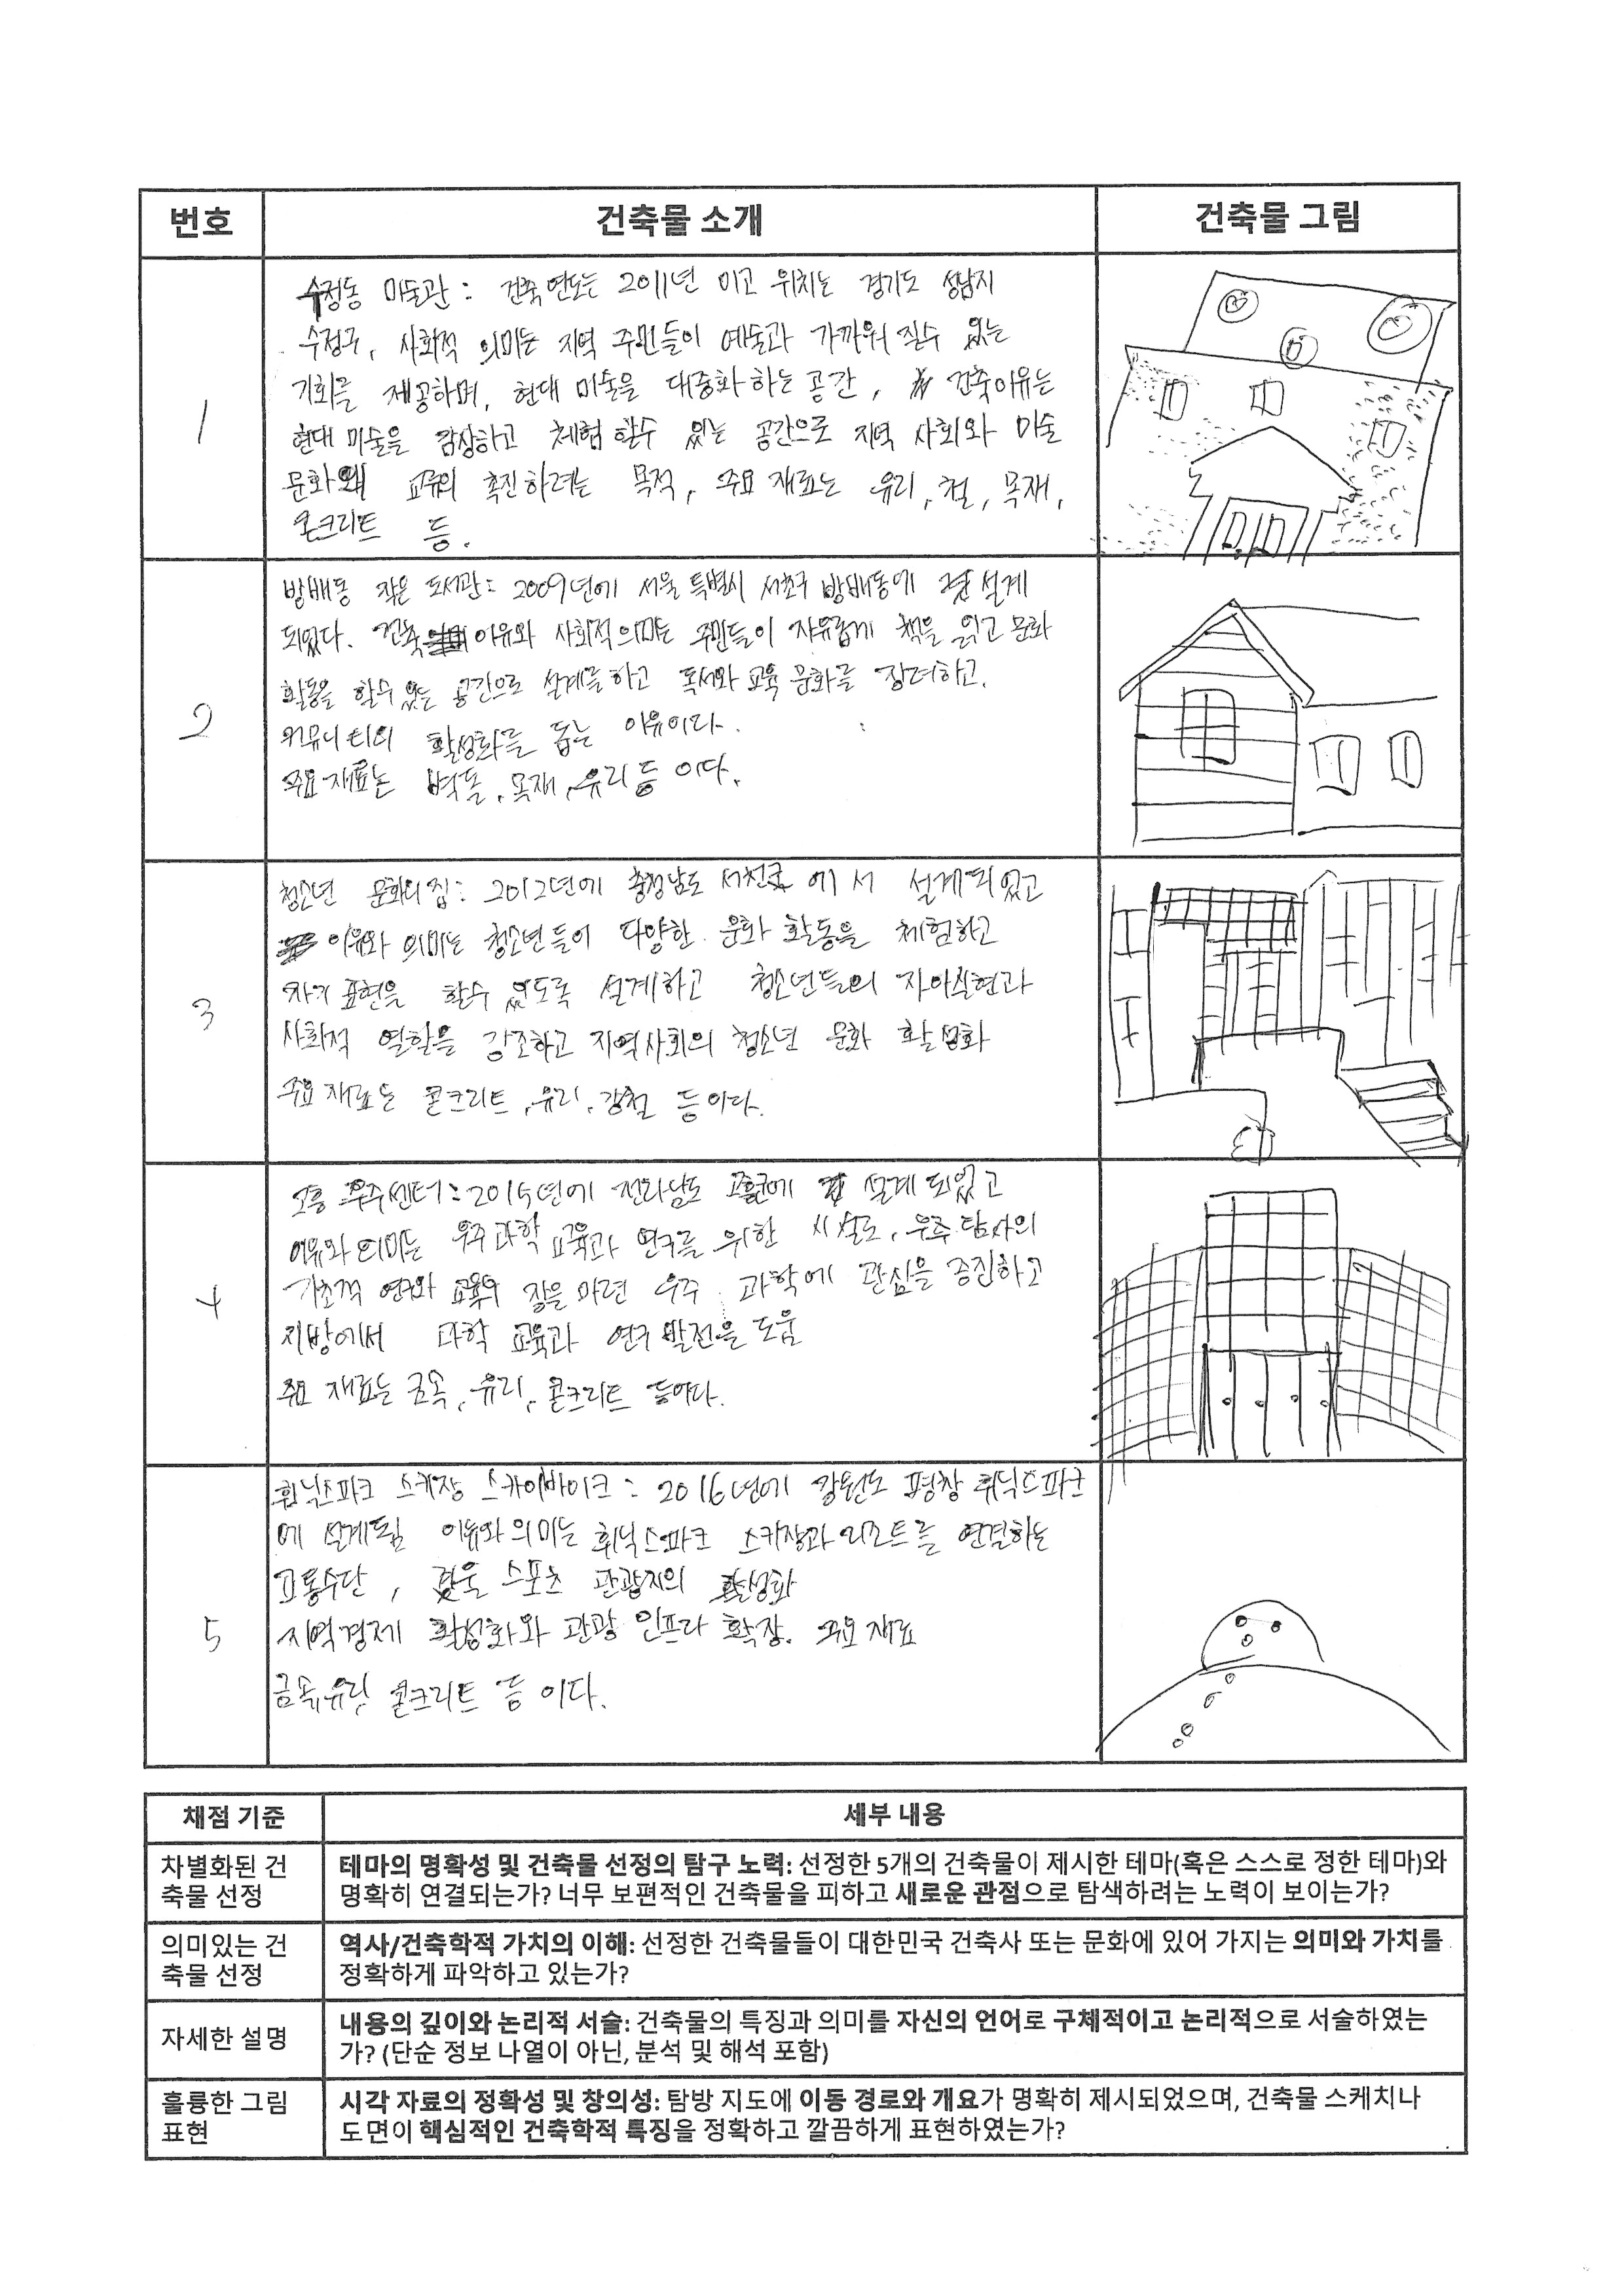 번호
건축물 소개
건축물 그림
1
수정동 미술관 : 건축 연도는 2011년 이고 위치는 경기도 성남시
수정구, 사회적 의미는 지역 주민들이 예술과 가까워 질수 있는
기회를 제공하며, 현대 미술을 대중화 하는 공간, 건축이유는
현대 미술을 감상하고 체험 할수 있는 공간으로 지역 사회와 미술
문화의 교류의 촉진하려는 목적, 주요 재료는 유리, 철, 목재,
콘크리트 등.
2
방배동 작은 도서관 : 2009년에 서울 특별시 서초구 방배동에 설계
되었다. 건축 이유와 사회적 의미는 주민들이 자유롭게 책을 읽고 문화
활동을 할수 있는 공간으로 설계를 하고 독서와 교육 문화를 장려하고,
커뮤니티의 활성화를 돕는 이유이다.
주요 재료는 벽돌, 목재, 유리 등 이다.
3
청소년 문화의 집 : 2012년에 충청남도 서천군 에서 설계되었고
이유와 의미는 청소년들이 다양한 문화 활동을 체험하고
자기 표현을 할수 있도록 설계하고 청소년들의 자아실현과
사회적 역할을 강조하고 지역사회의 청소년 문화 활성화
주요 재료는 콘크리트, 유리, 강철 등이다.
4
고흥 우주센터 : 2015년에 전라남도 고흥군에 설계 되었고
이유와 의미는 우주 과학 교육과 연구를 위한 시설로, 우주 탐사의
기초적 연구와 교육의 장을 마련 우주 과학에 관심을 증진하고
지방에서 과학 교육과 연구 발전을 도움
주요 재료는 금속, 유리, 콘크리트 등이다.
5
휘닉스파크 스키장 스카이바이크 : 2016년에 강원도 평창 휘닉스파크
에 설계됨 이유와 의미는 휘닉스파크 스키장과 리조트를 연결하는
교통수단, 겨울 스포츠 관광지의 활성화
지역경제 활성화와 관광 인프라 확장. 주요 재료
금속, 유리, 콘크리트 등 이다.
채점 기준
세부 내용
차별화된 건
축물 선정
테마의 명확성 및 건축물 선정의 탐구 노력: 선정한 5개의 건축물이 제시한 테마(혹은 스스로 정한 테마)와
명확히 연결되는가? 너무 보편적인 건축물을 피하고 새로운 관점으로 탐색하려는 노력이 보이는가?
의미있는 건
축물 선정
역사/건축학적 가치의 이해: 선정한 건축물들이 대한민국 건축사 또는 문화에 있어 가지는 의미와 가치를
정확하게 파악하고 있는가?
자세한 설명
내용의 깊이와 논리적 서술: 건축물의 특징과 의미를 자신의 언어로 구체적이고 논리적으로 서술하였는
가? (단순 정보 나열이 아닌, 분석 및 해석 포함)
훌륭한 그림
표현
시각 자료의 정확성 및 창의성: 탐방 지도에 이동 경로와 개요가 명확히 제시되었으며, 건축물 스케치나
도면이 핵심적인 건축학적 특징을 정확하고 깔끔하게 표현하였는가?